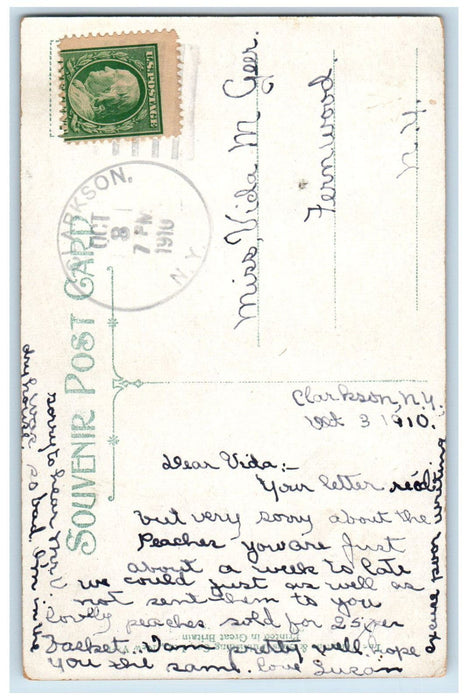 U.S. POSTAGE
CLARKSON,
OCT
3
7 PM
1910
N.Y.
SOUVENIR POST CARD
Miss, Vida M Geer.
Fernwood,
N.Y.
Clarkson, N.Y.
Oct 3 1910.
Dear Vida:-
Your letter recd
but very sorry about the
Peaches you are just
about a week to late
we could just as well as
not sent them to you
lovely peaches sold for 25¢ per
basket. I am pretty well hope
you the same. love Susan
excuse poor writing
sorry to hear
was so bad. Am in the
Printed in Great Britain